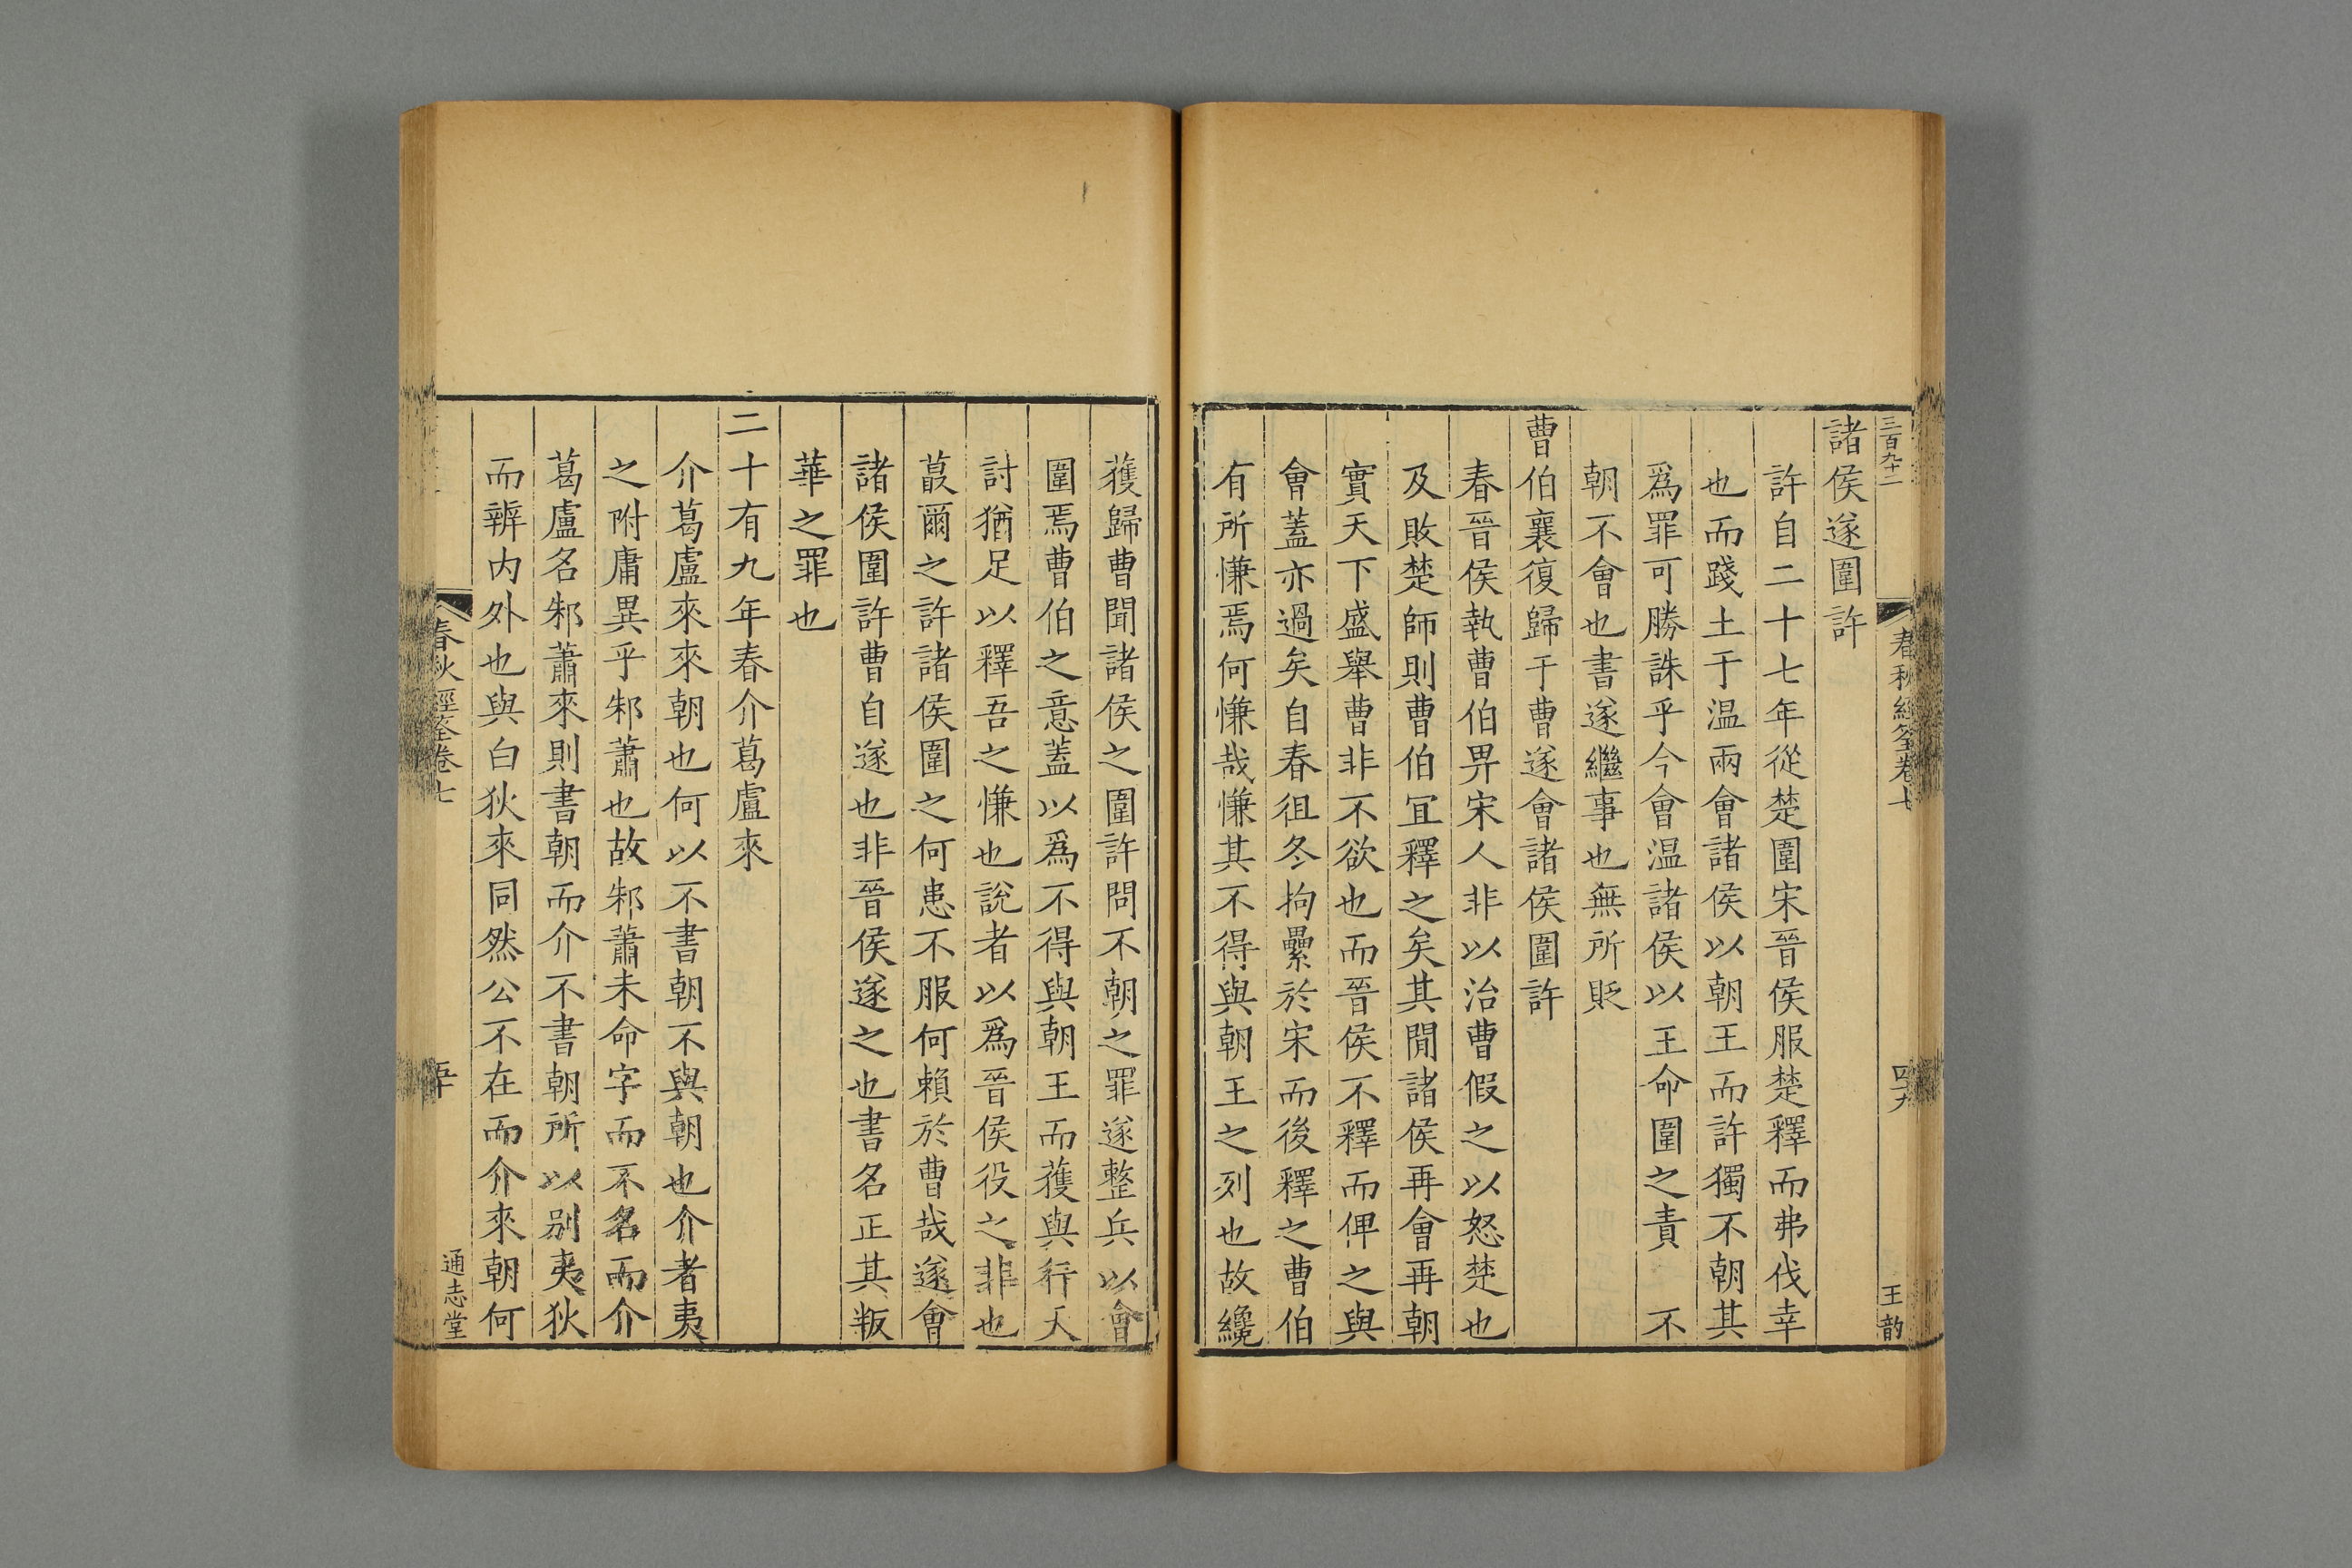 三百九十二
春秋經筌卷七
四十九
王韵
諸侯遂圍許
許自二十七年從楚圍宋晉侯服楚釋而弗伐幸
也而踐土于温兩會諸侯以朝王而許獨不朝其
爲罪可勝誅乎今會温諸侯以王命圍之責 不
朝不會也書遂繼事也無所貶
曹伯襄復歸于曹遂會諸侯圍許
春晉侯執曹伯畀宋人非以治曹假之以怒楚也
及敗楚師則曹伯冝釋之矣其閒諸侯再會再朝
實天下盛舉曹非不欲也而晉侯不釋而俾之與
會蓋亦過矣自春徂冬拘纍於宋而後釋之曹伯
有所慊焉何慊哉慊其不得與朝王之列也故纔
獲歸曹聞諸侯之圍許問不朝之罪遂整兵以會
圍焉曹伯之意蓋以爲不得與朝王而獲與行天
討猶足以釋吾之慊也說者以爲晉侯役之非也
蕞爾之許諸侯圍之何患不服何賴於曹哉遂會
諸侯圍許曹自遂也非晉侯遂之也書名正其叛
華之罪也
二十有九年春介葛盧來
介葛盧來來朝也何以不書朝不與朝也介者夷
之附庸異乎邾蕭也故邾蕭未命字而不名而介
葛盧名邾蕭來則書朝而介不書朝所以别夷狄
而辨内外也與白狄來同然公不在而介來朝何
春秋經筌卷七
五十
通志堂